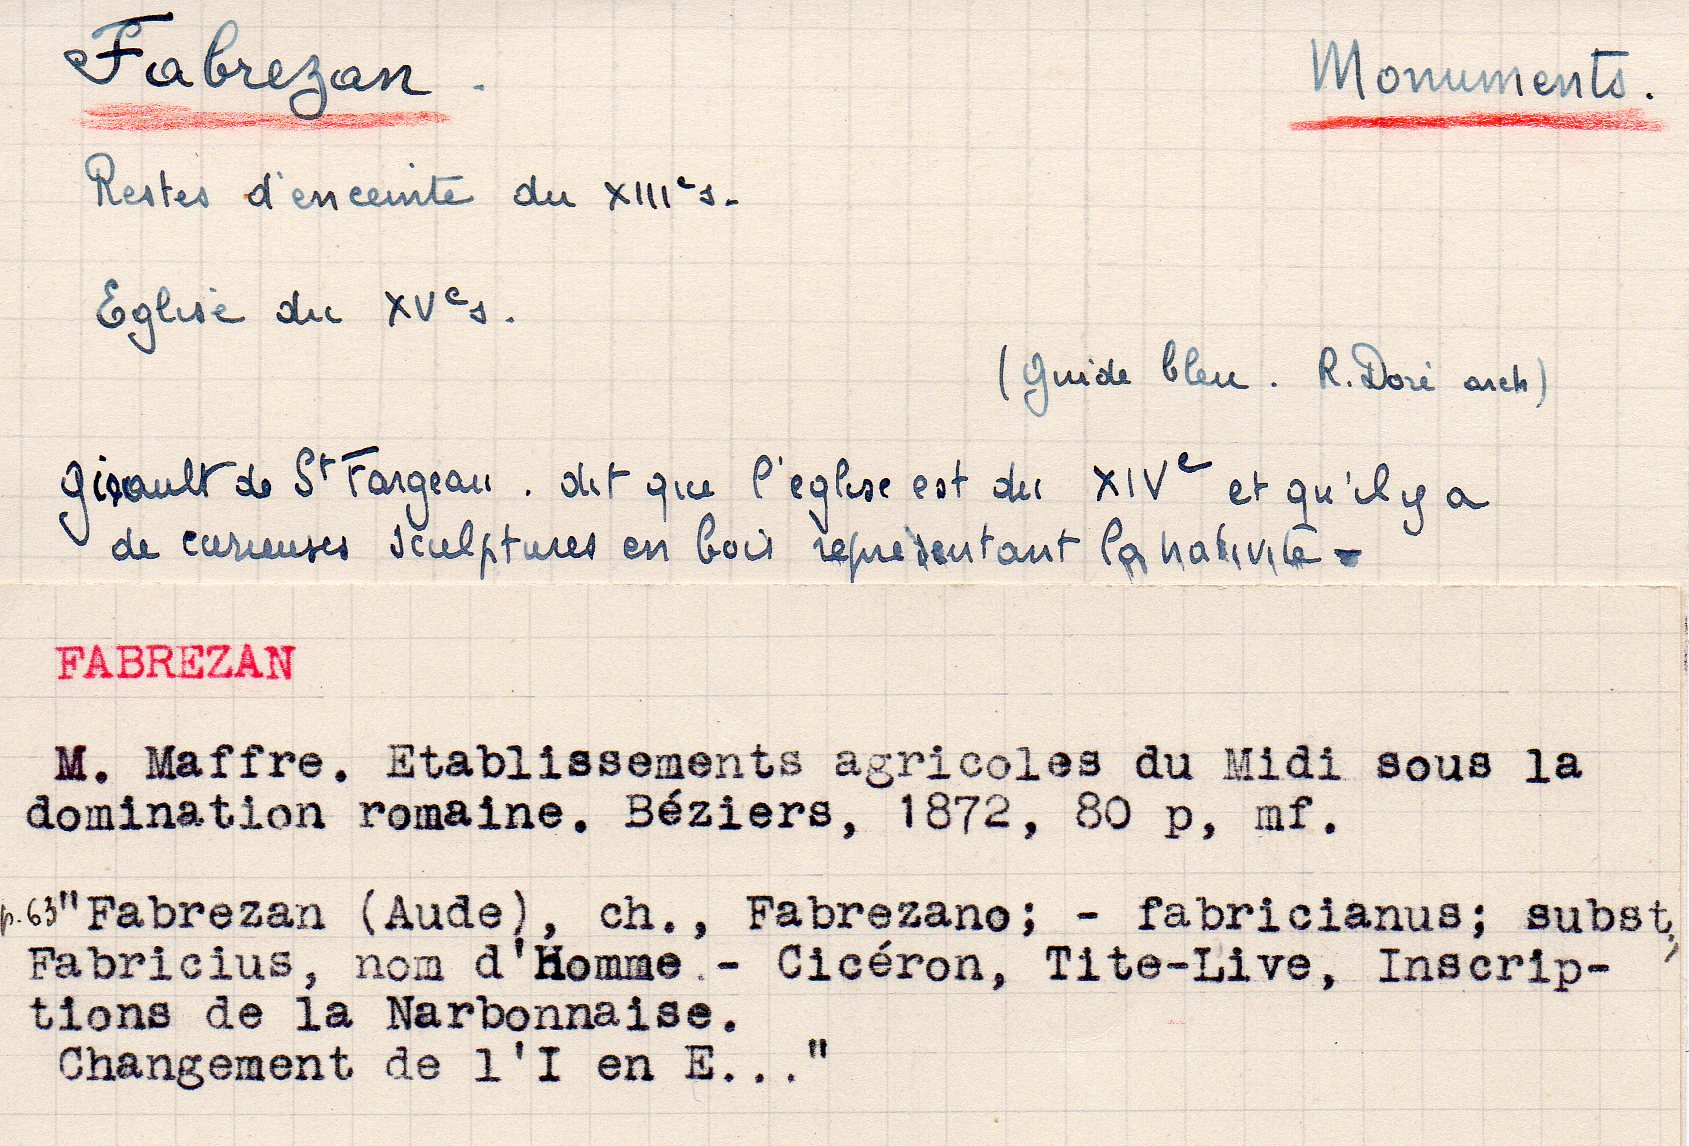 Fabrezan. Monuments.
Restes d'enceinte du XIIIe s.
Eglise du XVe s.
(Guide bleu. R. Doré arch)
Girault de St Fargeau. dit que l'eglise est du XIVe et qu'il y a
de curieuses sculptures en bois représentant la nativité -
FABREZAN
M. Maffre. Etablissements agricoles du Midi sous la
domination romaine. Béziers, 1872, 80 p, mf.
p.63 "Fabrezan (Aude), ch., Fabrezano; - fabricianus; subst,
Fabricius, nom d'Homme.- Cicéron, Tite-Live, Inscrip-
tions de la Narbonnaise.
Changement de l'I en E..."